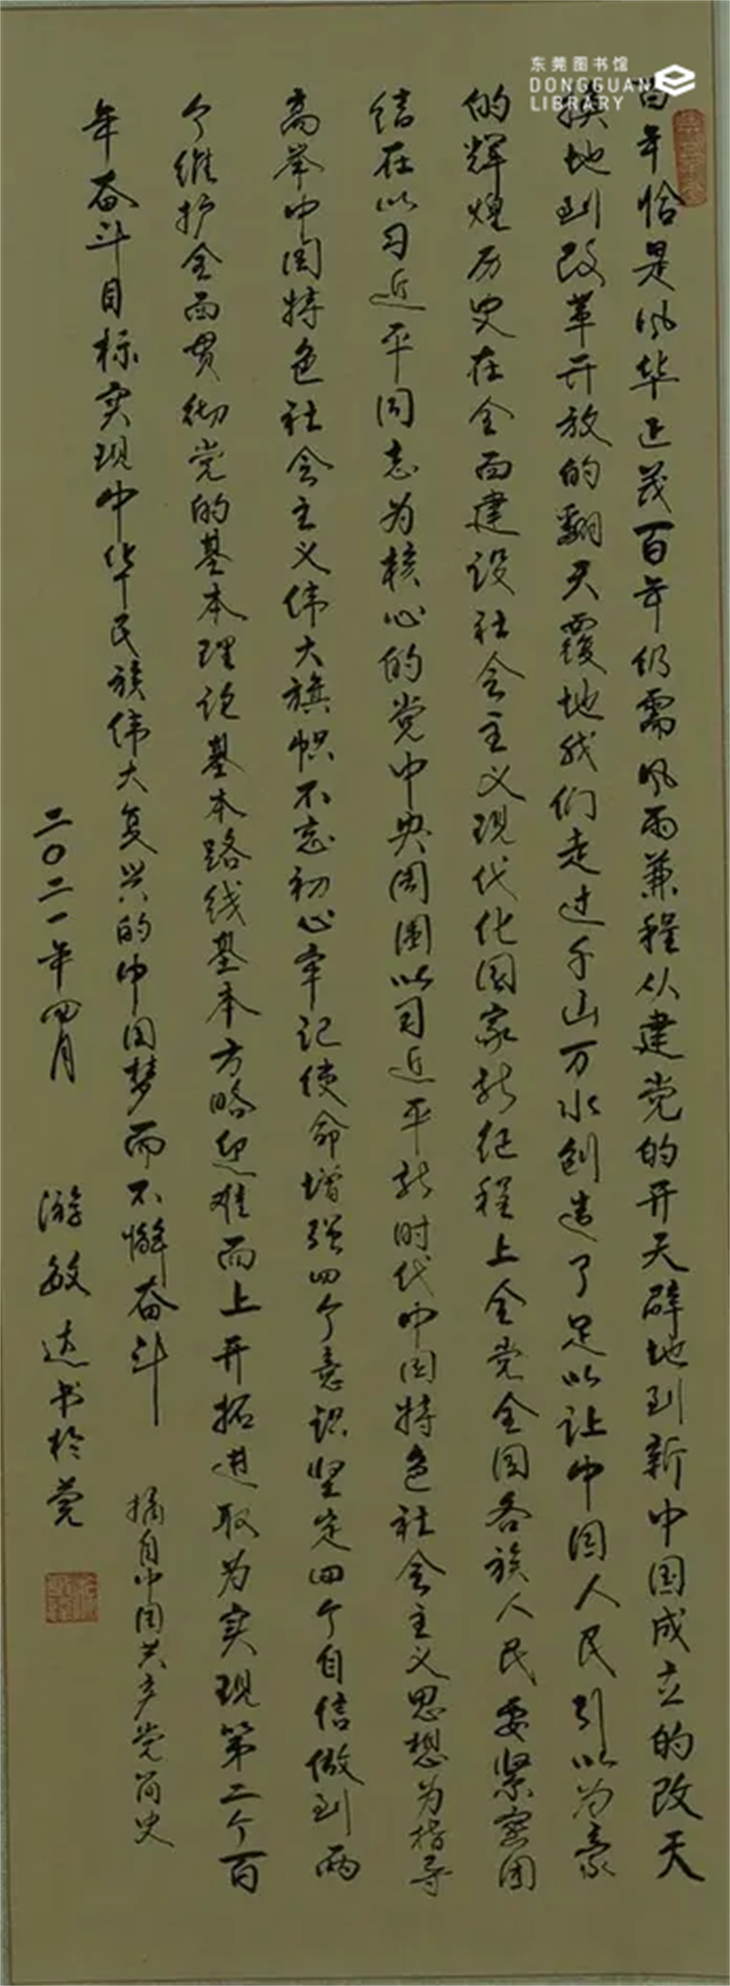 东莞图书馆
DONGGUAN
LIBRARY
百年恰是风华正茂百年仍需风雨兼程从建党的开天辟地到新中国成立的改天
换地到改革开放的翻天覆地我们走过千山万水创造了足以让中国人民引以为豪
的辉煌历史在全面建设社会主义现代化国家新征程上全党全国各族人民要紧密团
结在以习近平同志为核心的党中央周围以习近平新时代中国特色社会主义思想为指导
高举中国特色社会主义伟大旗帜不忘初心牢记使命增强四个意识坚定四个自信做到两
个维护全面贯彻党的基本理论基本路线基本方略迎难而上开拓进取为实现第二个百
年奋斗目标实现中华民族伟大复兴的中国梦而不懈奋斗 摘自中国共产党简史
二〇二一年四月 游敏达书於莞